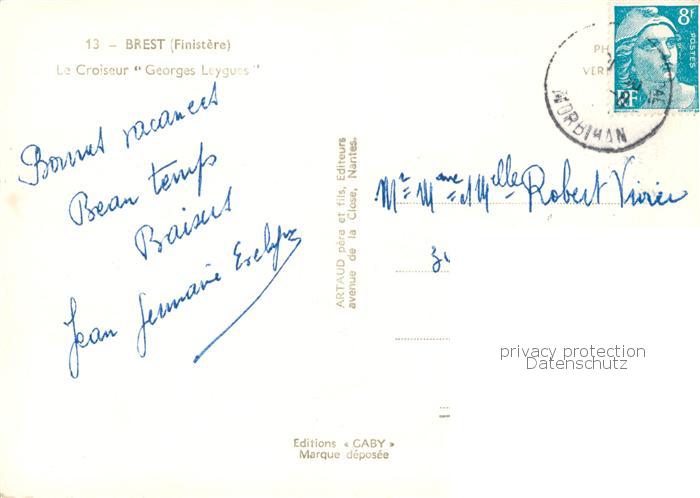 13 – BREST (Finistère)
Le Croiseur " Georges Leygues "
Bonnes vacances
Beau temps
Baisers
Jean Germaine Evelyne
ARTAUD père et fils, Editeurs
avenue de la Close, Nantes.
Editions « GABY »
Marque déposée
PH
VER
8F
POSTES
RF
MORBIHAN
Mr Mme et Melle Robert Vivier
privacy protection
Datenschutz